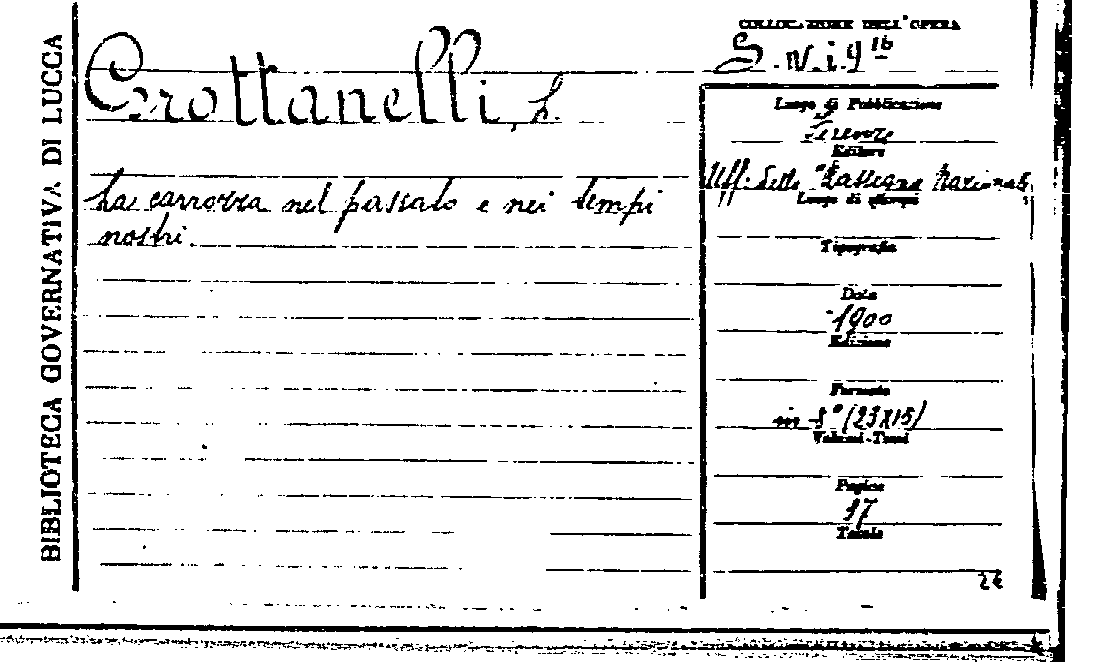 BIBLIOTECA GOVERNATIVA DI LUCCA
Grottanelli, L.
La carrozza nel passato e nei tempi
nostri.
COLLOCAZIONE DELL'OPERA
S. N. i. 9 16
Luogo di Pubblicazione
Firenze
Editore
Uff. della "Rassegna Nazionale"
Luogo di stampa
Tipografia
Data
1900
Edizione
Formato
in 8° (23x15)
Volumi-Tomi
Pagine
17
Tavole